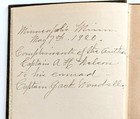 Minneapolis Minn.
May 7th 1920.
Compliments of the Author
Captain A. W. Nelson
To his comrad
Captain Geo. Trendall